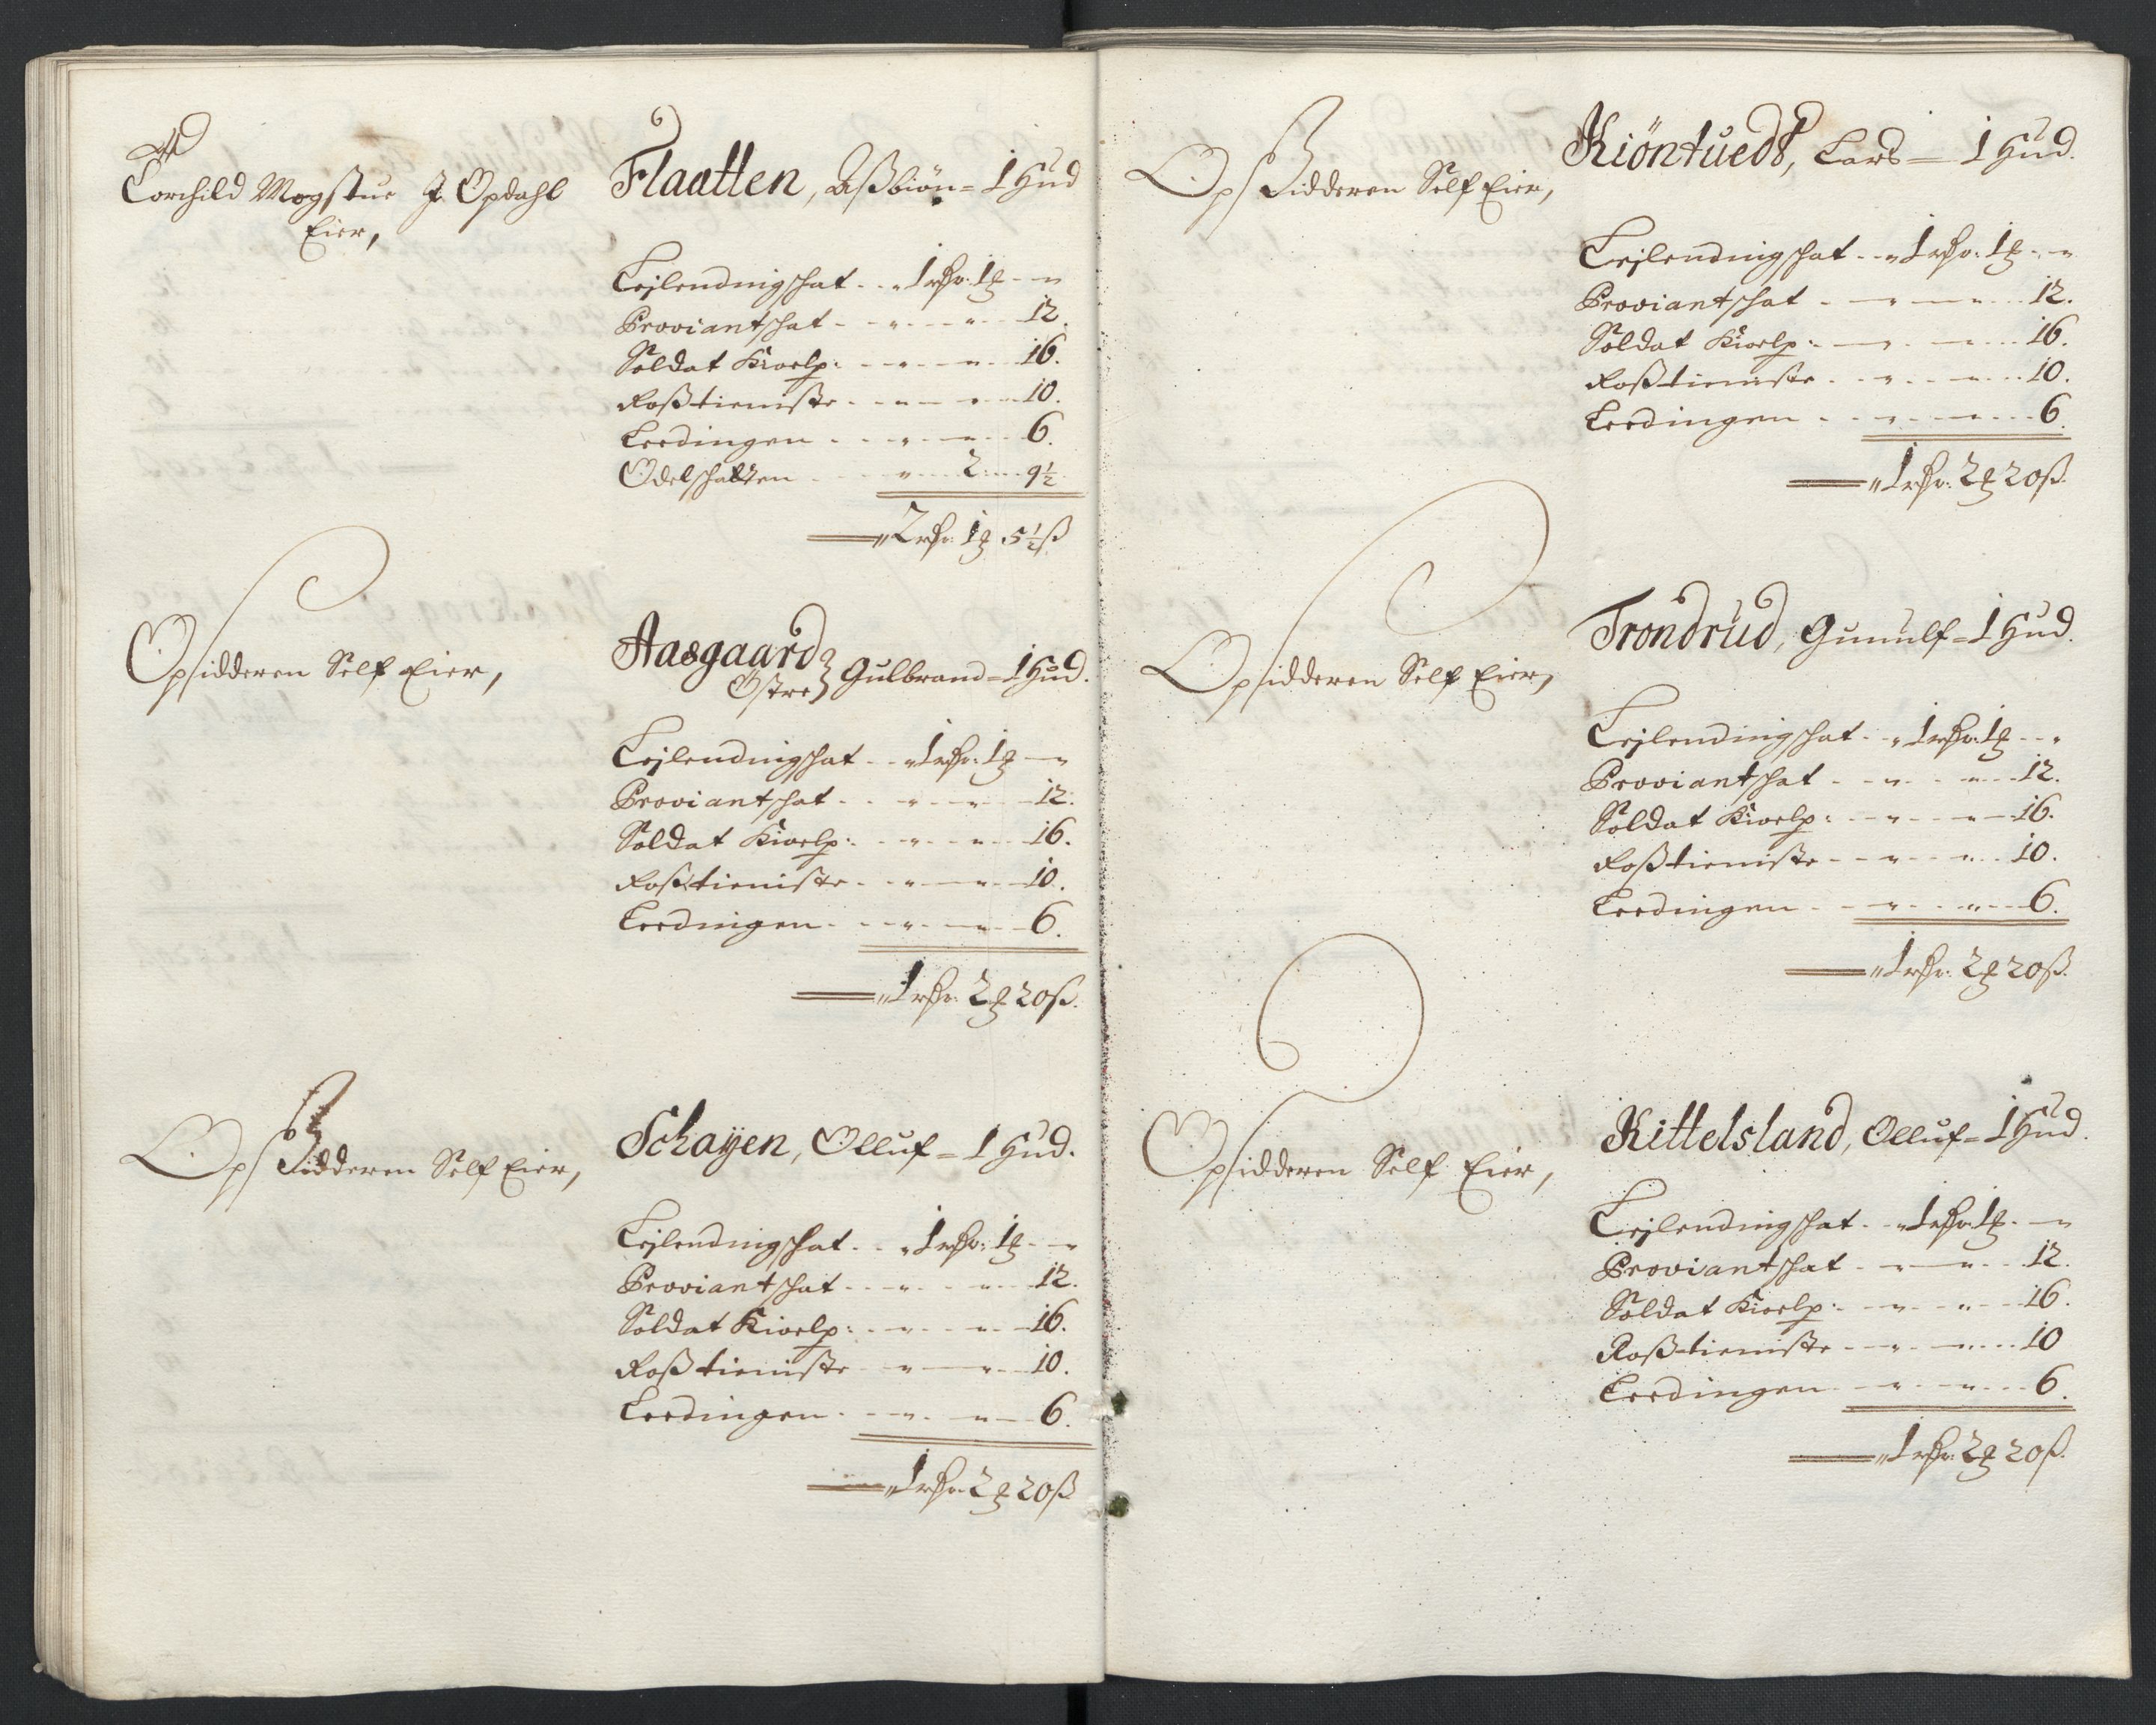 Torchild Mogstue J Opdahl
Eier,
Flaatten, Aßbiön = 1 Hud
Leilendingschat . . „ 1 rdr: 1 ort - „
Proviantschat - - „ - - „ - 12.
Soldat Kioelp: - - „ - - „ - 16.
Roßtieniste - - „ - - „ - 10.
Leedingen - - „ - - „ - 6.
Odelschatten - - „ - 2 - 9½
„ 2 rdr: 1 ort 5½ ß
Opsidderen Self Eier,
Aasgaard
Östre Gulbrand = 1 Hud.
Leilendingschat - - „ 1 rdr: 1 ort - „
Proviantschat - - „ - - „ - 12.
Soldat Kioelp: - - „ - - „ - 16.
Roßtieniste - - „ - - „ - 10.
Leedingen - - „ - - „ - 6.
„ 1 rdr: 2 ort 20 ß.
Opsidderen Self Eier,
Schayen, Olluf = 1 Hud.
Leilendingschat - - „ 1 rdr: 1 ort - „
Proviantschat - - „ - - „ - 12.
Soldat Kioelp: - - „ - - „ - 16.
Roßtieniste - - „ - - „ - 10.
Leedingen - - „ - - „ - 6.
„ 1 rdr: 2 ort 20 ß
Opsidderen Self Eier,
Kiöntuedt, Lars = 1 Hud.
Leilendingschat - - „ 1 rdr: 1 ort - „
Proviantschat - - „ - - „ - 12.
Soldat Kioelp: - - „ - - „ - 16.
Roßtieniste - - „ - - „ - 10.
Leedingen - - „ - - „ - 6.
„ 1 rdr: 2 ort 20 ß.
Opsidderen Self Eier,
Trondrud, Gunulf = 1 Hud.
Leilendingschat - - „ 1 rdr: 1 ort - „
Proviantschat - - „ - - „ - 12.
Soldat Kioelp: - - „ - - „ - 16.
Roßtieniste - - „ - - „ - 10.
Leedingen - - „ - - „ - 6.
„ 1 rdr: 2 ort 20 ß.
Opsidderen Self Eier,
Kittelsland, Olluf = 1 Hud.
Leilendingschat - - „ 1 rdr: 1 ort - „
Proviantschat - - „ - - „ - 12.
Soldat Kioelp: - - „ - - „ - 16.
Roßtieniste - - „ - - „ - 10
Leedingen - - „ - - „ - 6.
„ 1 rdr: 2 ort 20 ß.